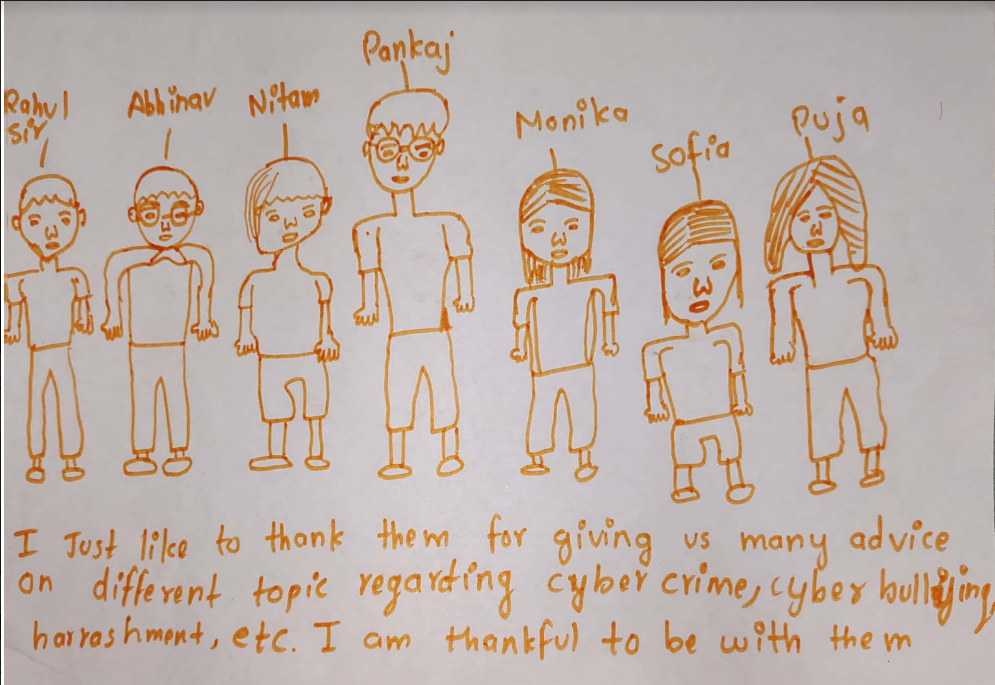 Pankaj
Rahul
Sir
Abhinav
Nitam
Monika
Sofia
Puja
I Just like to thank them for giving us many advice
on different topic regarding cyber crime, cyber bullijing,
harrashment, etc. I am thankful to be with them